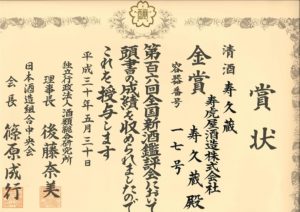 賞状
清酒 寿久蔵
寿虎屋酒造株式会社
金賞 寿久蔵殿
容器番号 一七号
第百六回全国新酒鑑評会において
頭書の成績を収められましたので
これを授与します
平成三十年五月三十日
独立行政法人酒類総合研究所
理事長 後藤奈美
日本酒造組合中央会
会長 篠原成行